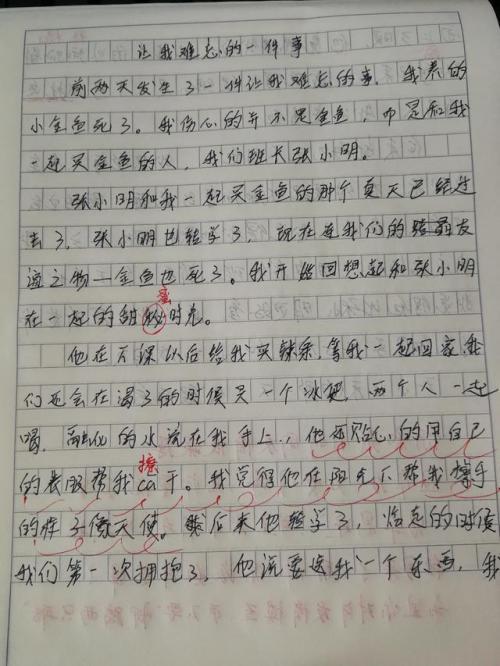 让我难忘的一件事
前两天发生了一件让我难忘的事。我养的
小金鱼死了。我伤心的并不是金鱼，而是和我
一起买金鱼的人，我们班长张小明。
张小明和我一起买金鱼的那个夏天已经过
去了，张小明也转学了，现在连我们的友
谊之物—金鱼也死了。我开始回想起和张小明
在一起的甜秘时光。
蜜
他在下课以后给我买辣条，等我一起回家，我
们还会在渴了的时候买一个冰棍，两个人一起
喝，融化的水流在我手上，他还贴心的用自己
擦
的衣服帮我ca干。我觉得他在阳光下帮我擦手
的样子像天使。后来他转学了，临走的时候
我们第一次拥抱了，他说要送我一个东西，我